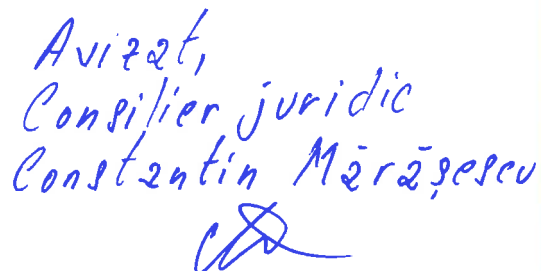 Avizat,
Consilier juridic
Constantin Mărășescu